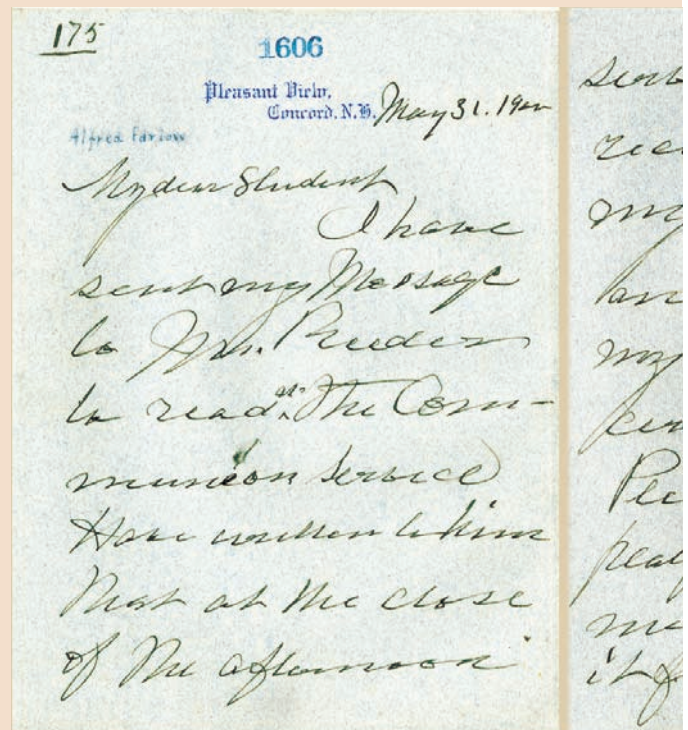 175
1606
Pleasant View,
Concord, N.H. May 31. 1900
Alfred Farlow
My dear Student
I have
sent my Message
to
to read at The Com-
munion Service
Have written to him
that at the close
of the afternoon
my
my